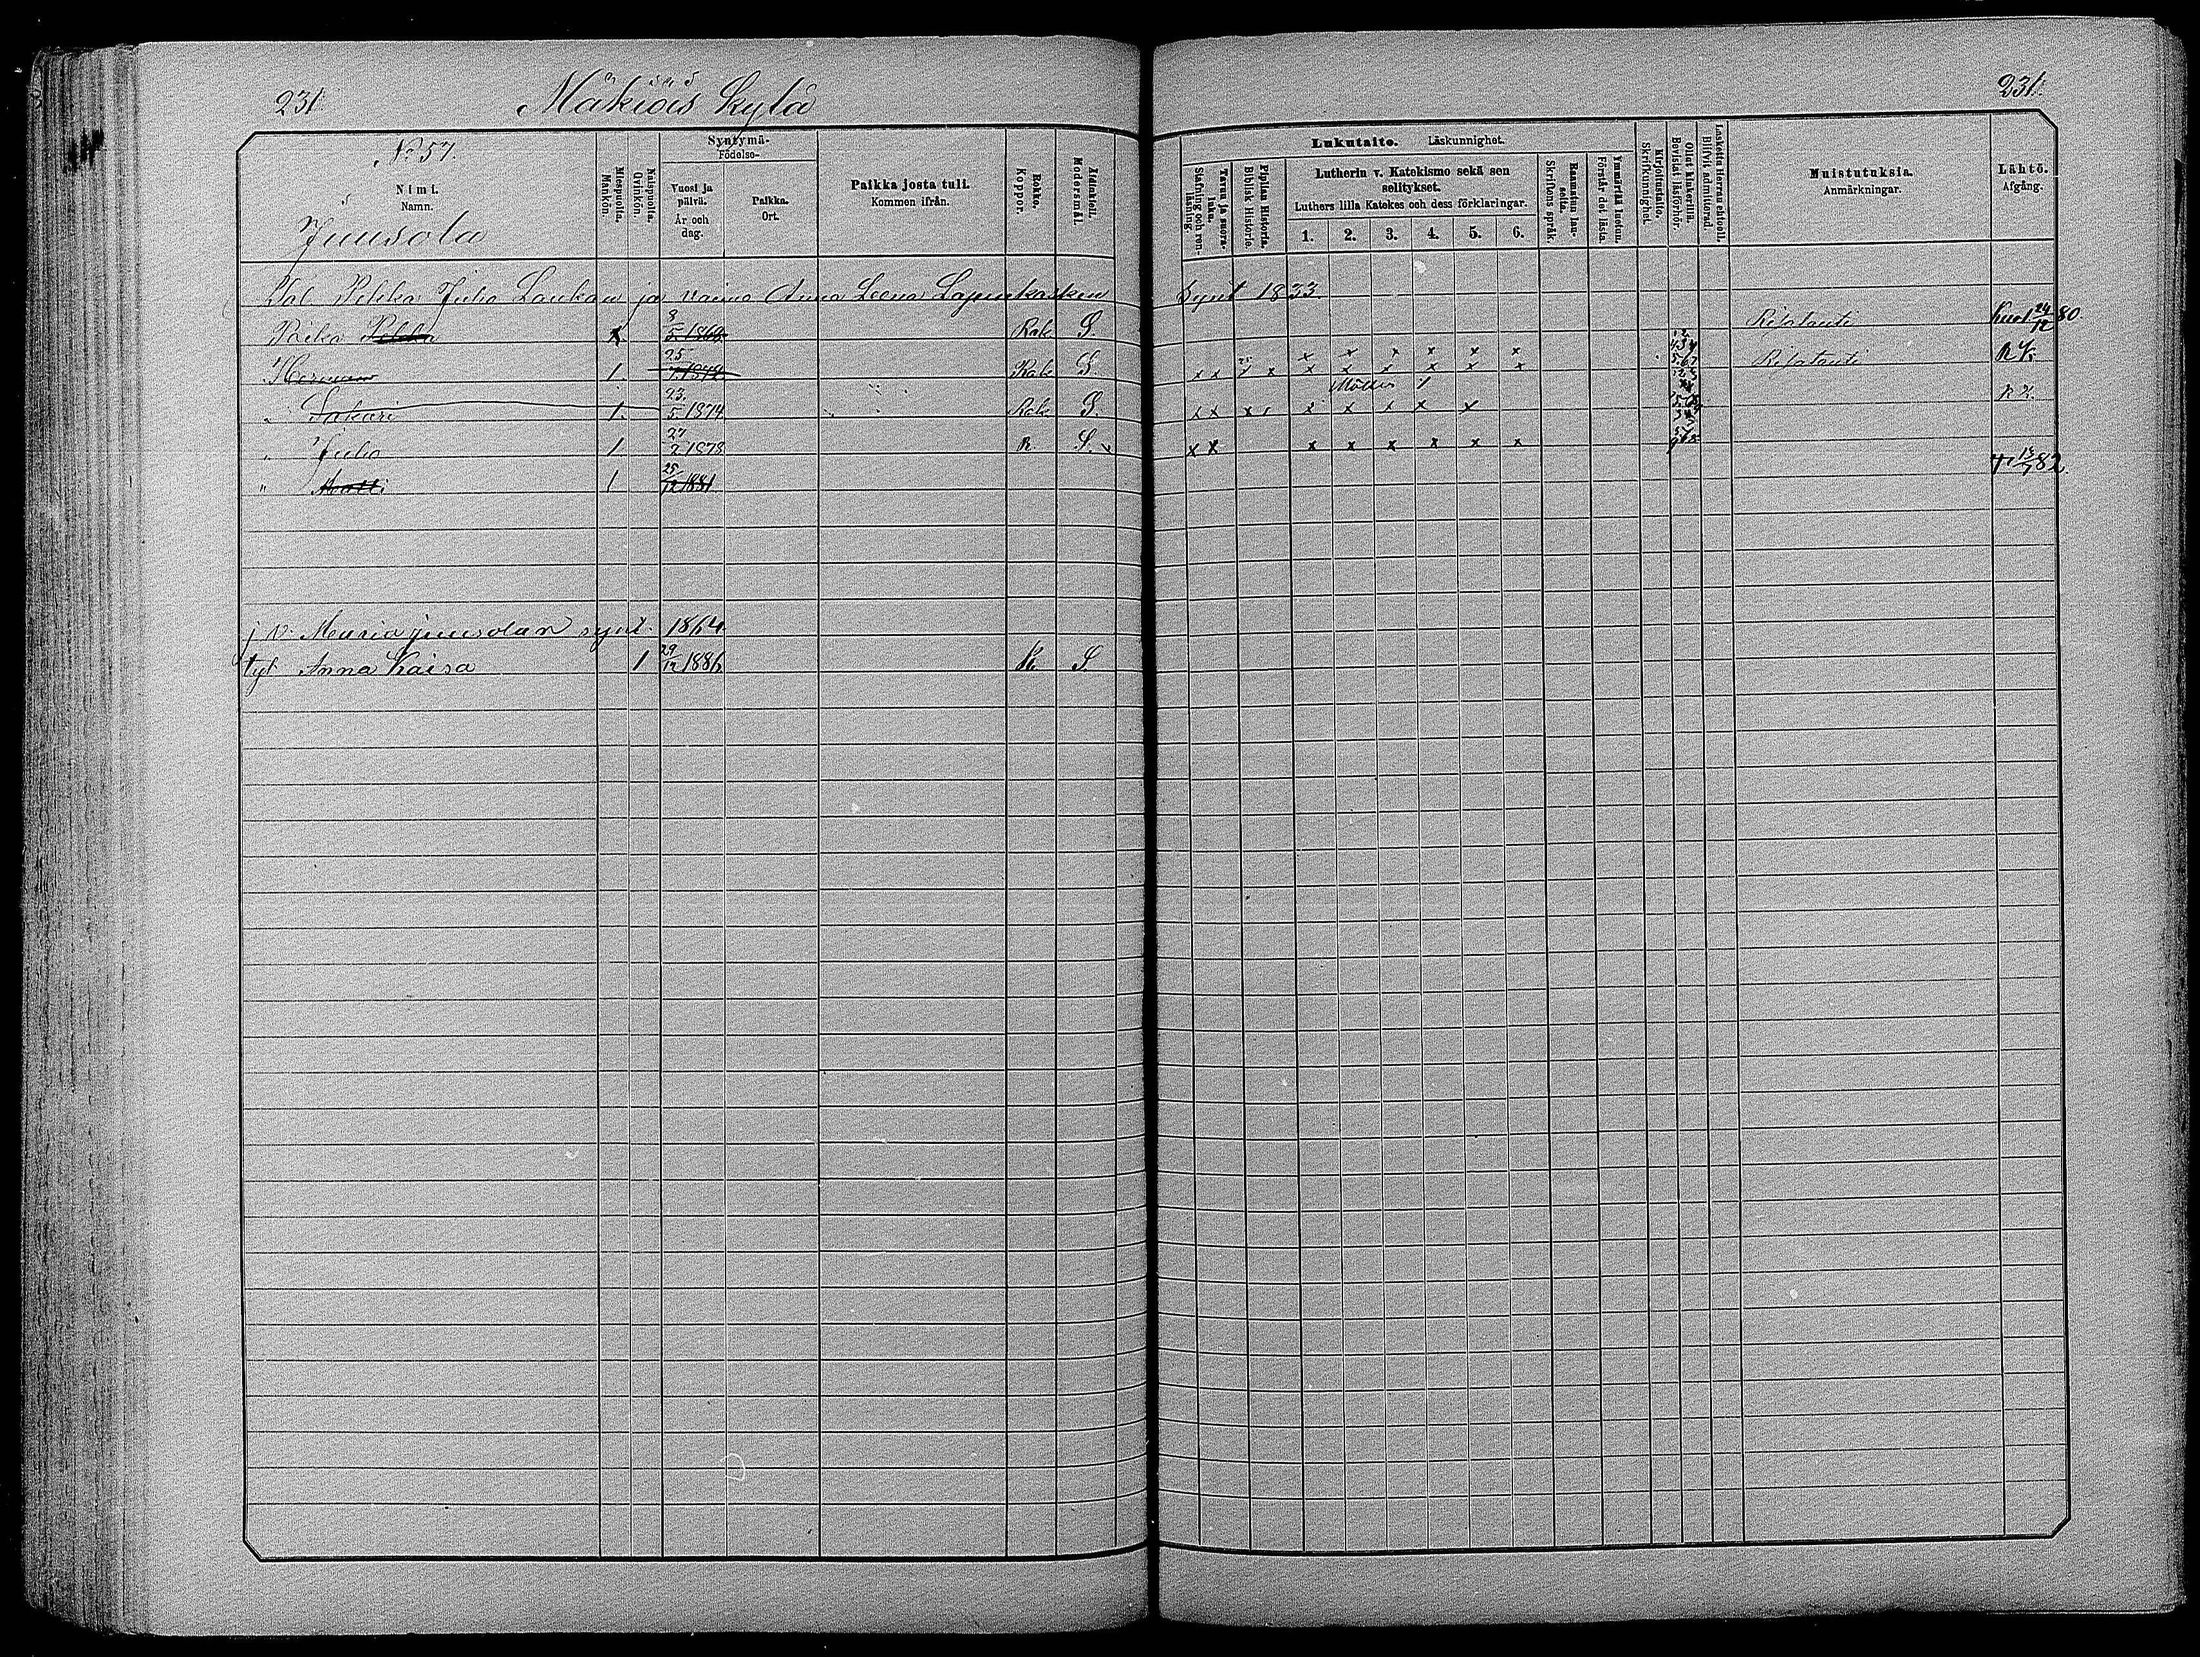 231.
Mäkiäis Kylä
231.
No 57.
Nimi.
Namn.
Juusola
Miespuolta.
Mankön.
Naispuolta.
Qvinkön.
Syntymä-
Födelse-
Vuosi ja päivä.
År och dag.
Paikka.
Ort.
Paikka josta tuli.
Kommen ifrån.
Rokko.
Koppor.
Äidinkieli.
Modersmål.
Lukutaito. Läskunnighet.
Tavuu ja suora-
luku.
Stafning och ren-
läsning.
Piplian Historia.
Biblisk Historie.
Lutherin v. Katekismo sekä sen
selitykset.
Luthers lilla Katekes och dess förklaringar.
1. 2. 3. 4. 5. 6.
Raamatun lau-
seita.
Skriftens språk.
Ymmärtää luetun.
Förstår det lästa.
Kirjoitustaito.
Skrifkunnighet.
Ollut kinkerillä.
Bevistat läsförhör.
Laskettu Herran ehtooll.
Blifvit admitterad.
Muistutuksia.
Anmärkningar.
Lähtö.
Afgång.
Tal. Pekka Juho Laukan ja vaimo Anna Leena synt 1833.
Poika Pekka 8/5 1869 Rok S. kuol 24/12 80
Herman 1. 25/7 1872 Rok S. x x x x x x x x R K
" Sakari 1. 23/5 1874 Rok S. x x x x x x x
" Juho 1 27/2 1878 R S. x x x x x x x x
" Matti 1 25/12 1881 † 13/7 82
j v. Maria juusolan synt. 1864
tyt Anna Kaisa 1 29/12 1886 R S